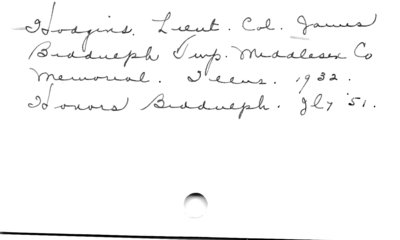 Hodgins, Lieut. Col. James
Biddulph Twp. Middlesex Co
Memorial. 1932.
Honors Biddulph. Jly '51.